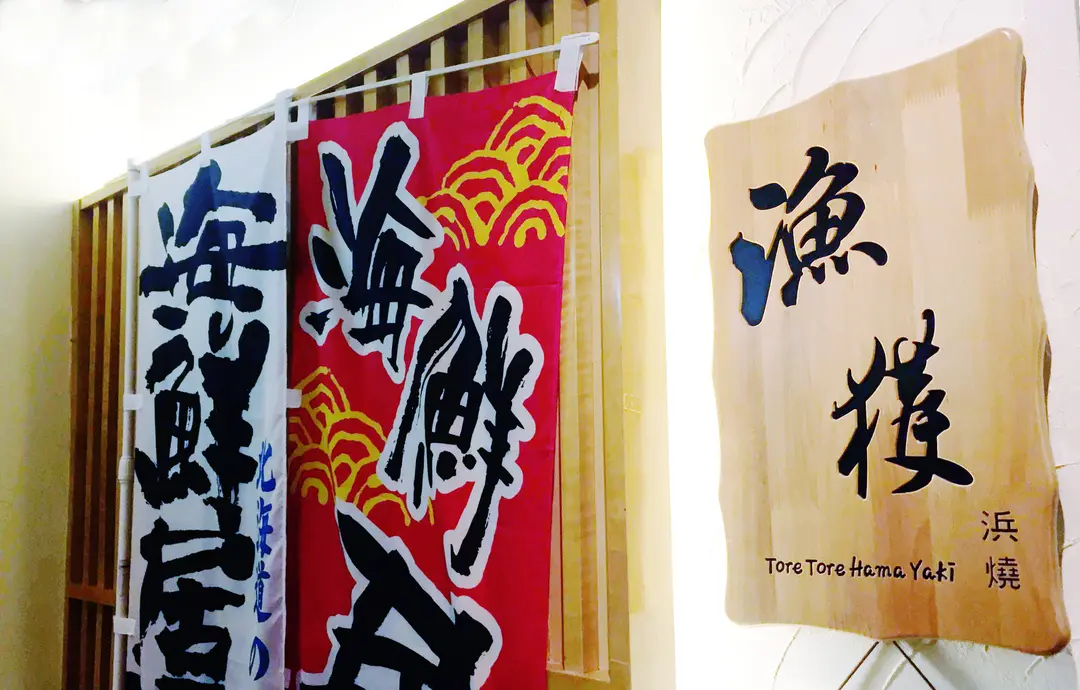 海鮮居
北海道の
海鮮
漁獲
浜
燒
Tore Tore Hama Yaki